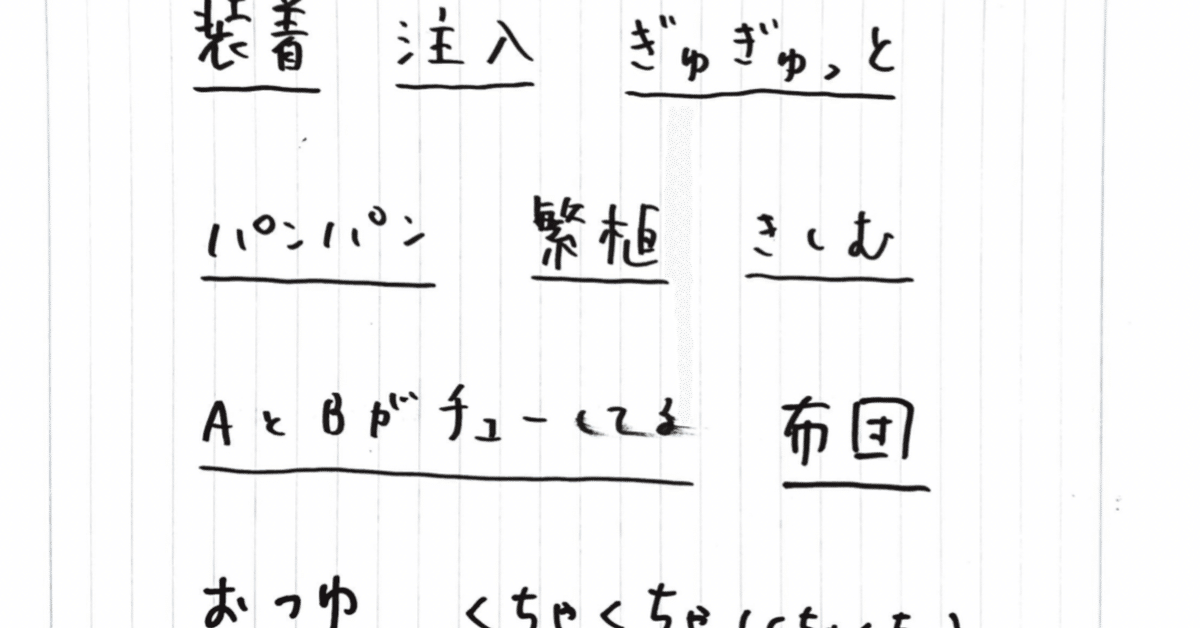 装着 注入 ぎゅぎゅっと
パンパン 繁柩 きしむ
AとBがチューしてる 布団
おつゆ くちゃくちゃ